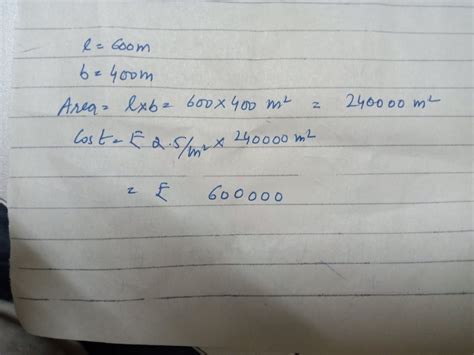 l = 600m
b = 400m
Area = l×b = 600 × 400 m² = 240000 m²
Cost = ₹ 2.5/m² × 240000 m²
= ₹ 600000